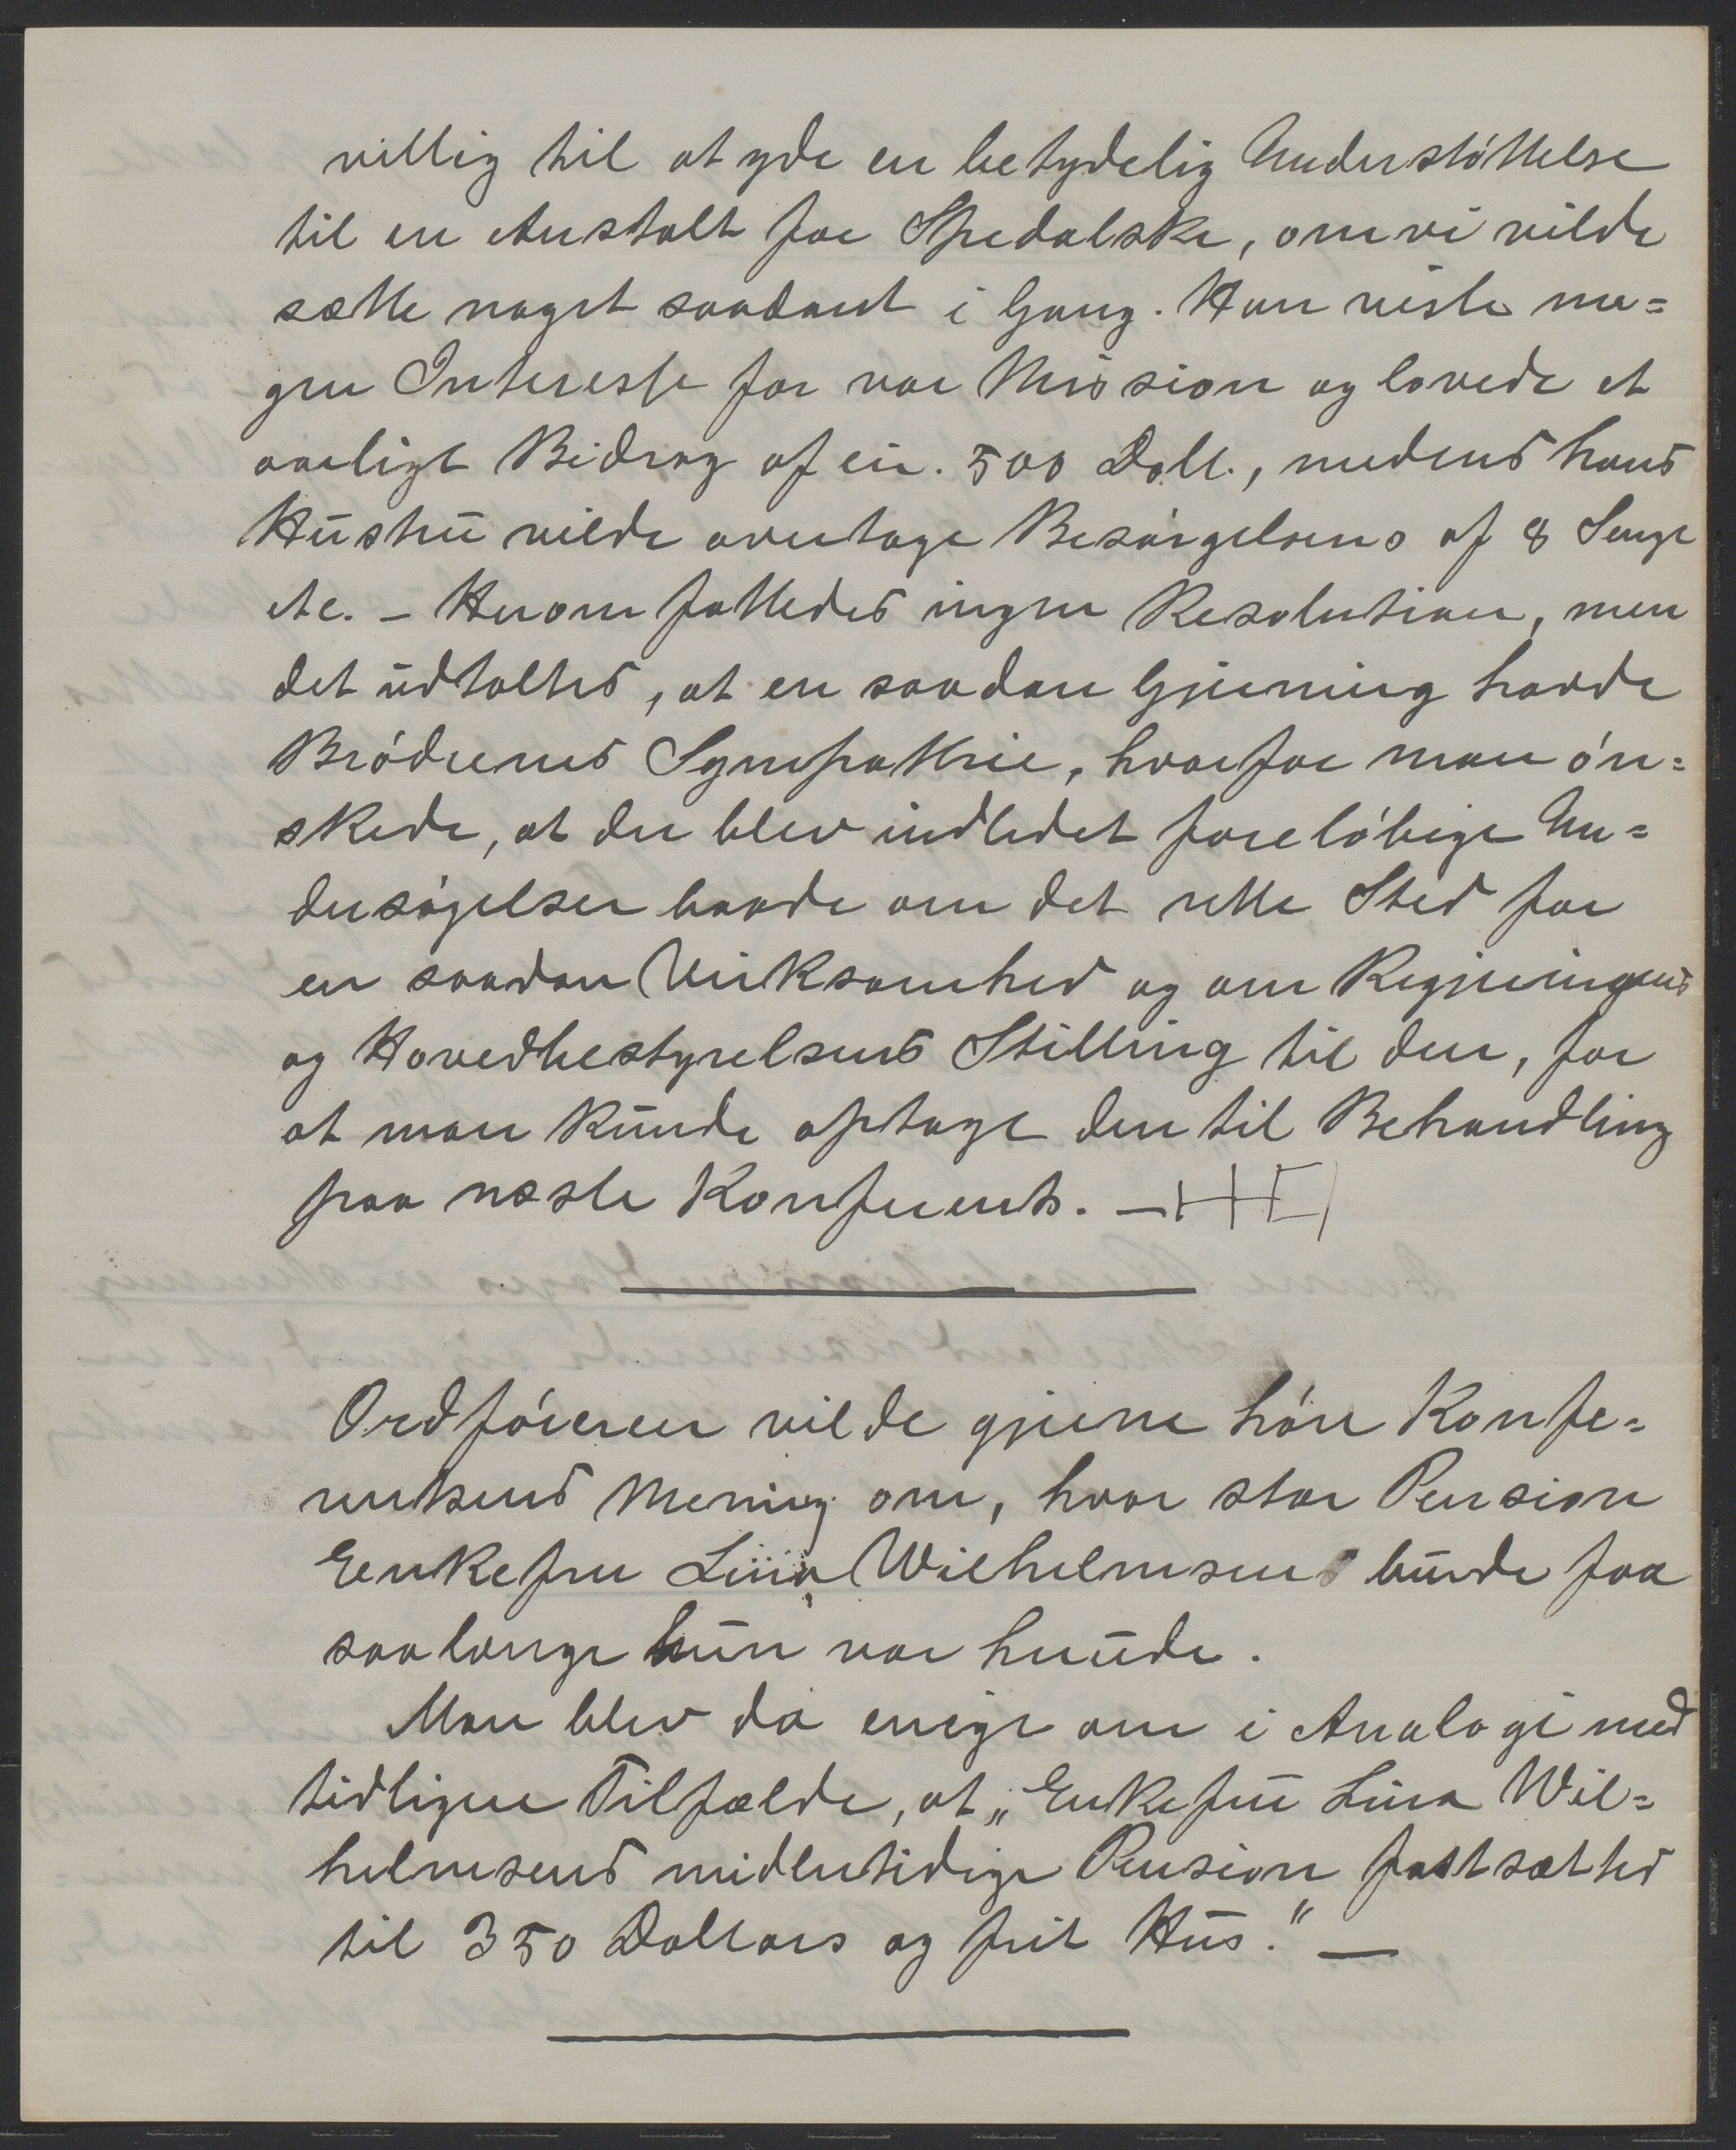 villig til at yde en betydelig Understöttelse
til en Anstalt for Spedalske, om vi vilde
sætte noget saadant i Gang. Han viste me=
gen Interesse for vor Mission og lovede et
aarligt Bidrag af cir. 500 Doll., medens hans
Hustru vilde overtage Besörgelsens af 8 Senge
etc. – Herom fattedes ingen Resolution, men
det udtaltes, at en saadan Gjerning havde
Brödrenes Sympathie, hvorfor man ön=
skede, at der blev indledet forelöbige Un=
dersögelser baade om det rette Sted for
en saadan Virksomhed og om Regjeringens
og Hovedbestyrelsens Stilling til den, for
at man kunde optage den til Behandling
paa næste Konferents. –
Ordföreren vilde gjerne höre Konfe=
rentsens Mening om, hvor stor Pension
Enkefru Lina Wilhelmsen burde faa
saalænge hun var herude.
Man blev da enige om i Analogi med
tidligere Tilfælde, at „Enkefru Lina Wil=
helmsens midlertidige Pension fastsættes
til 350 Dollars og frit Hus.“ —